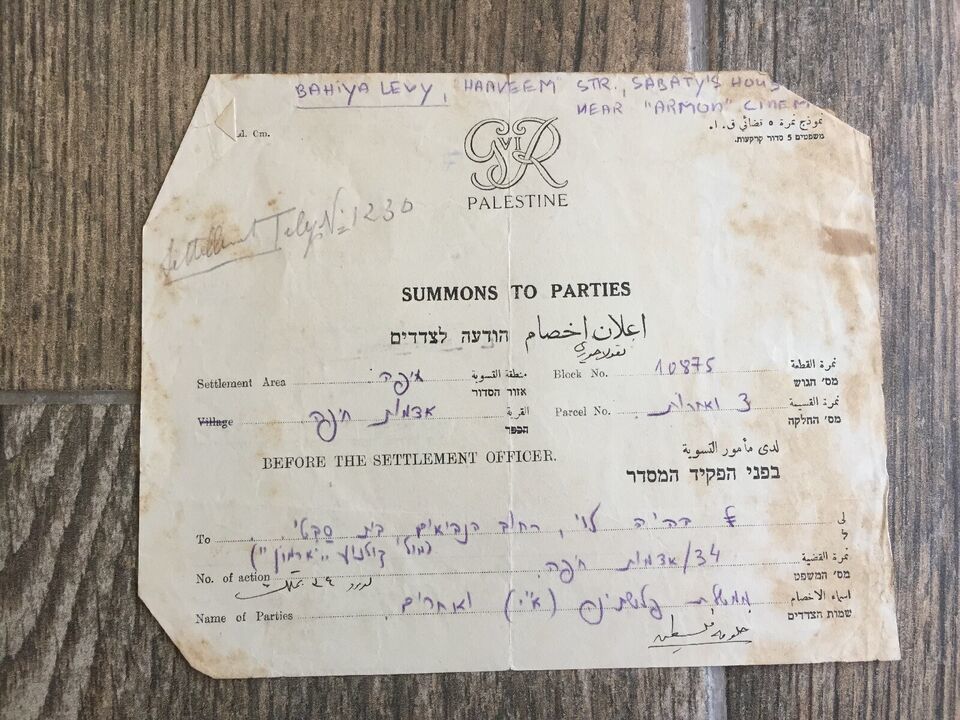 BAHIYA LEVY, "HANVEEM" STR., SABATY'S HOUS
NEAR "ARMON" CINEM
نموذج نمرة ٥ قضائي ق. ا.
משפטים 5 סדור קרקעות.
Cm.
G VI R
PALESTINE
Settlement No 1230
SUMMONS TO PARTIES
اعلان اخصام הודעה לצדדים
Settlement Area חיפה منطقة التسوية Block No. 10875 نمرة القطعة
אזור הסדור מס' הגוש
Village אדמות חיפה القرية Parcel No. 3 ואחרות نمرة القسيمة
הכפר מס' החלקה
لدى مأمور التسوية
BEFORE THE SETTLEMENT OFFICER.
בפני הפקיד המסדר
To בהיה לוי, רחוב הנביאים, בית סבטי لى
ל
(מול קולנוע "ארמון")
No. of action 34/אדמות חיפה. نمرة القضية
מס' המשפט
Name of Parties ממשלת פלשתינה (א"י) ואחרים اسماء الاخصام
שמות הצדדים
حكومة فلسطين